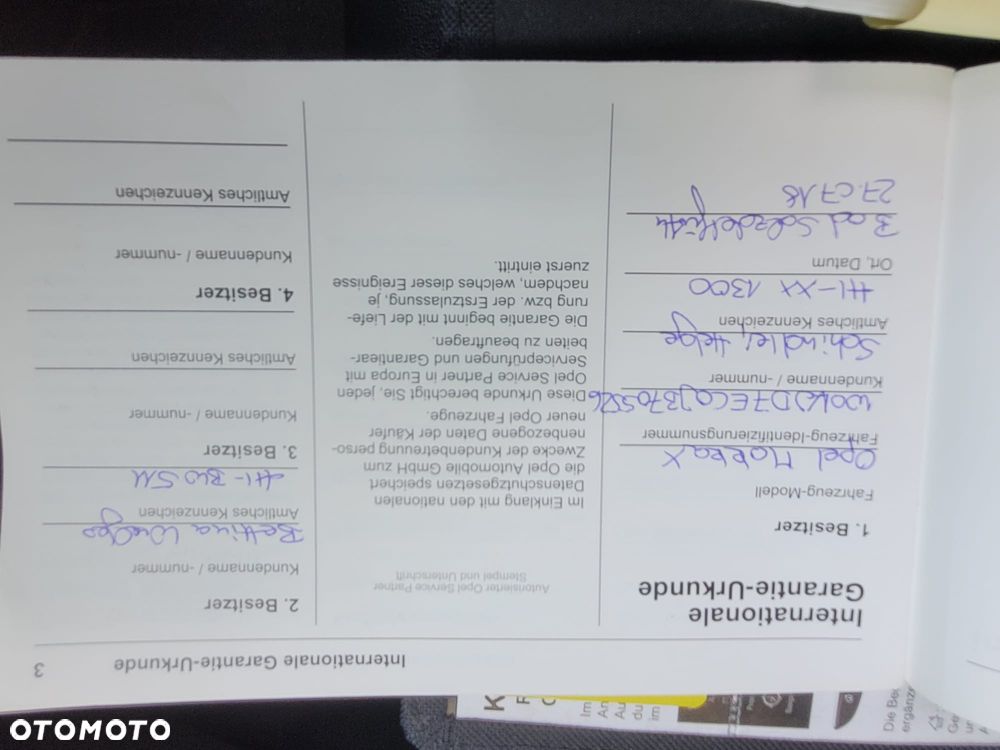 Internationale Garantie-Urkunde 3
Internationale
Garantie-Urkunde
1. Besitzer
Fahrzeug-Modell
Opel Mokka X
Fahrzeug-Identifizierungsnummer
Kundenname / -nummer
Schindler, Helge
Amtliches Kennzeichen
HI-XX 1300
Ort, Datum
Bad Salzdetfurth
27.07.18
Autorisierter Opel Service Partner
Stempel und Unterschrift
Im Einklang mit den nationalen
Datenschutzgesetzen speichert
die Opel Automobile GmbH zum
Zwecke der Kundenbetreuung perso-
nenbezogene Daten der Käufer
neuer Opel Fahrzeuge.
Diese Urkunde berechtigt Sie, jeden
Opel Service Partner in Europa mit
Serviceprüfungen und Garantiear-
beiten zu beauftragen.
Die Garantie beginnt mit der Liefe-
rung bzw. der Erstzulassung, je
nachdem, welches dieser Ereignisse
zuerst eintritt.
2. Besitzer
Kundenname / -nummer
Bettina
Amtliches Kennzeichen
3. Besitzer
Kundenname / -nummer
Amtliches Kennzeichen
4. Besitzer
Kundenname / -nummer
Amtliches Kennzeichen
OTOMOTO